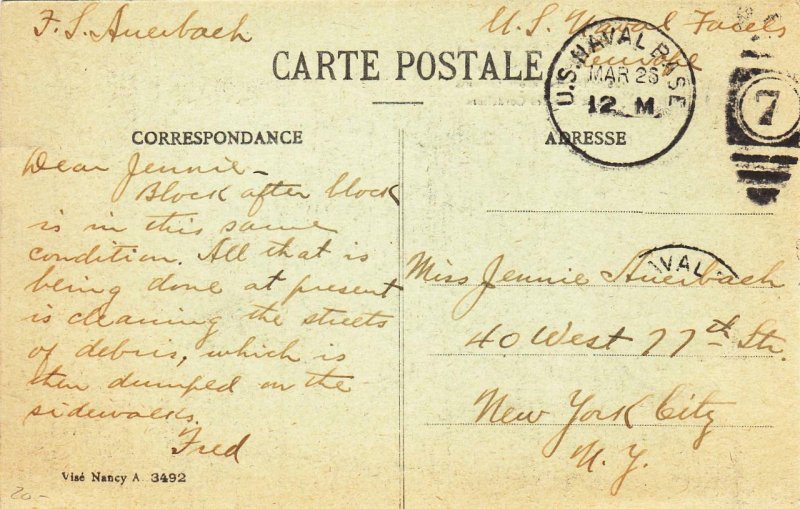 F. S. Auerbach
U. S. Naval Forces
CARTE POSTALE
U.S. NAVAL BASE
MAR 26
12 M
7
CORRESPONDANCE
Dear Jennie-
Block after block
is in this same
condition. All that is
being done at present
is cleaning the streets
of debris, which is
then dumped on the
sidewalks.
Fred
Visé Nancy A 3492
20-
ADRESSE
VAL
Miss Jennie Auerbach
40 West 77th Str.
New York City
N. Y.